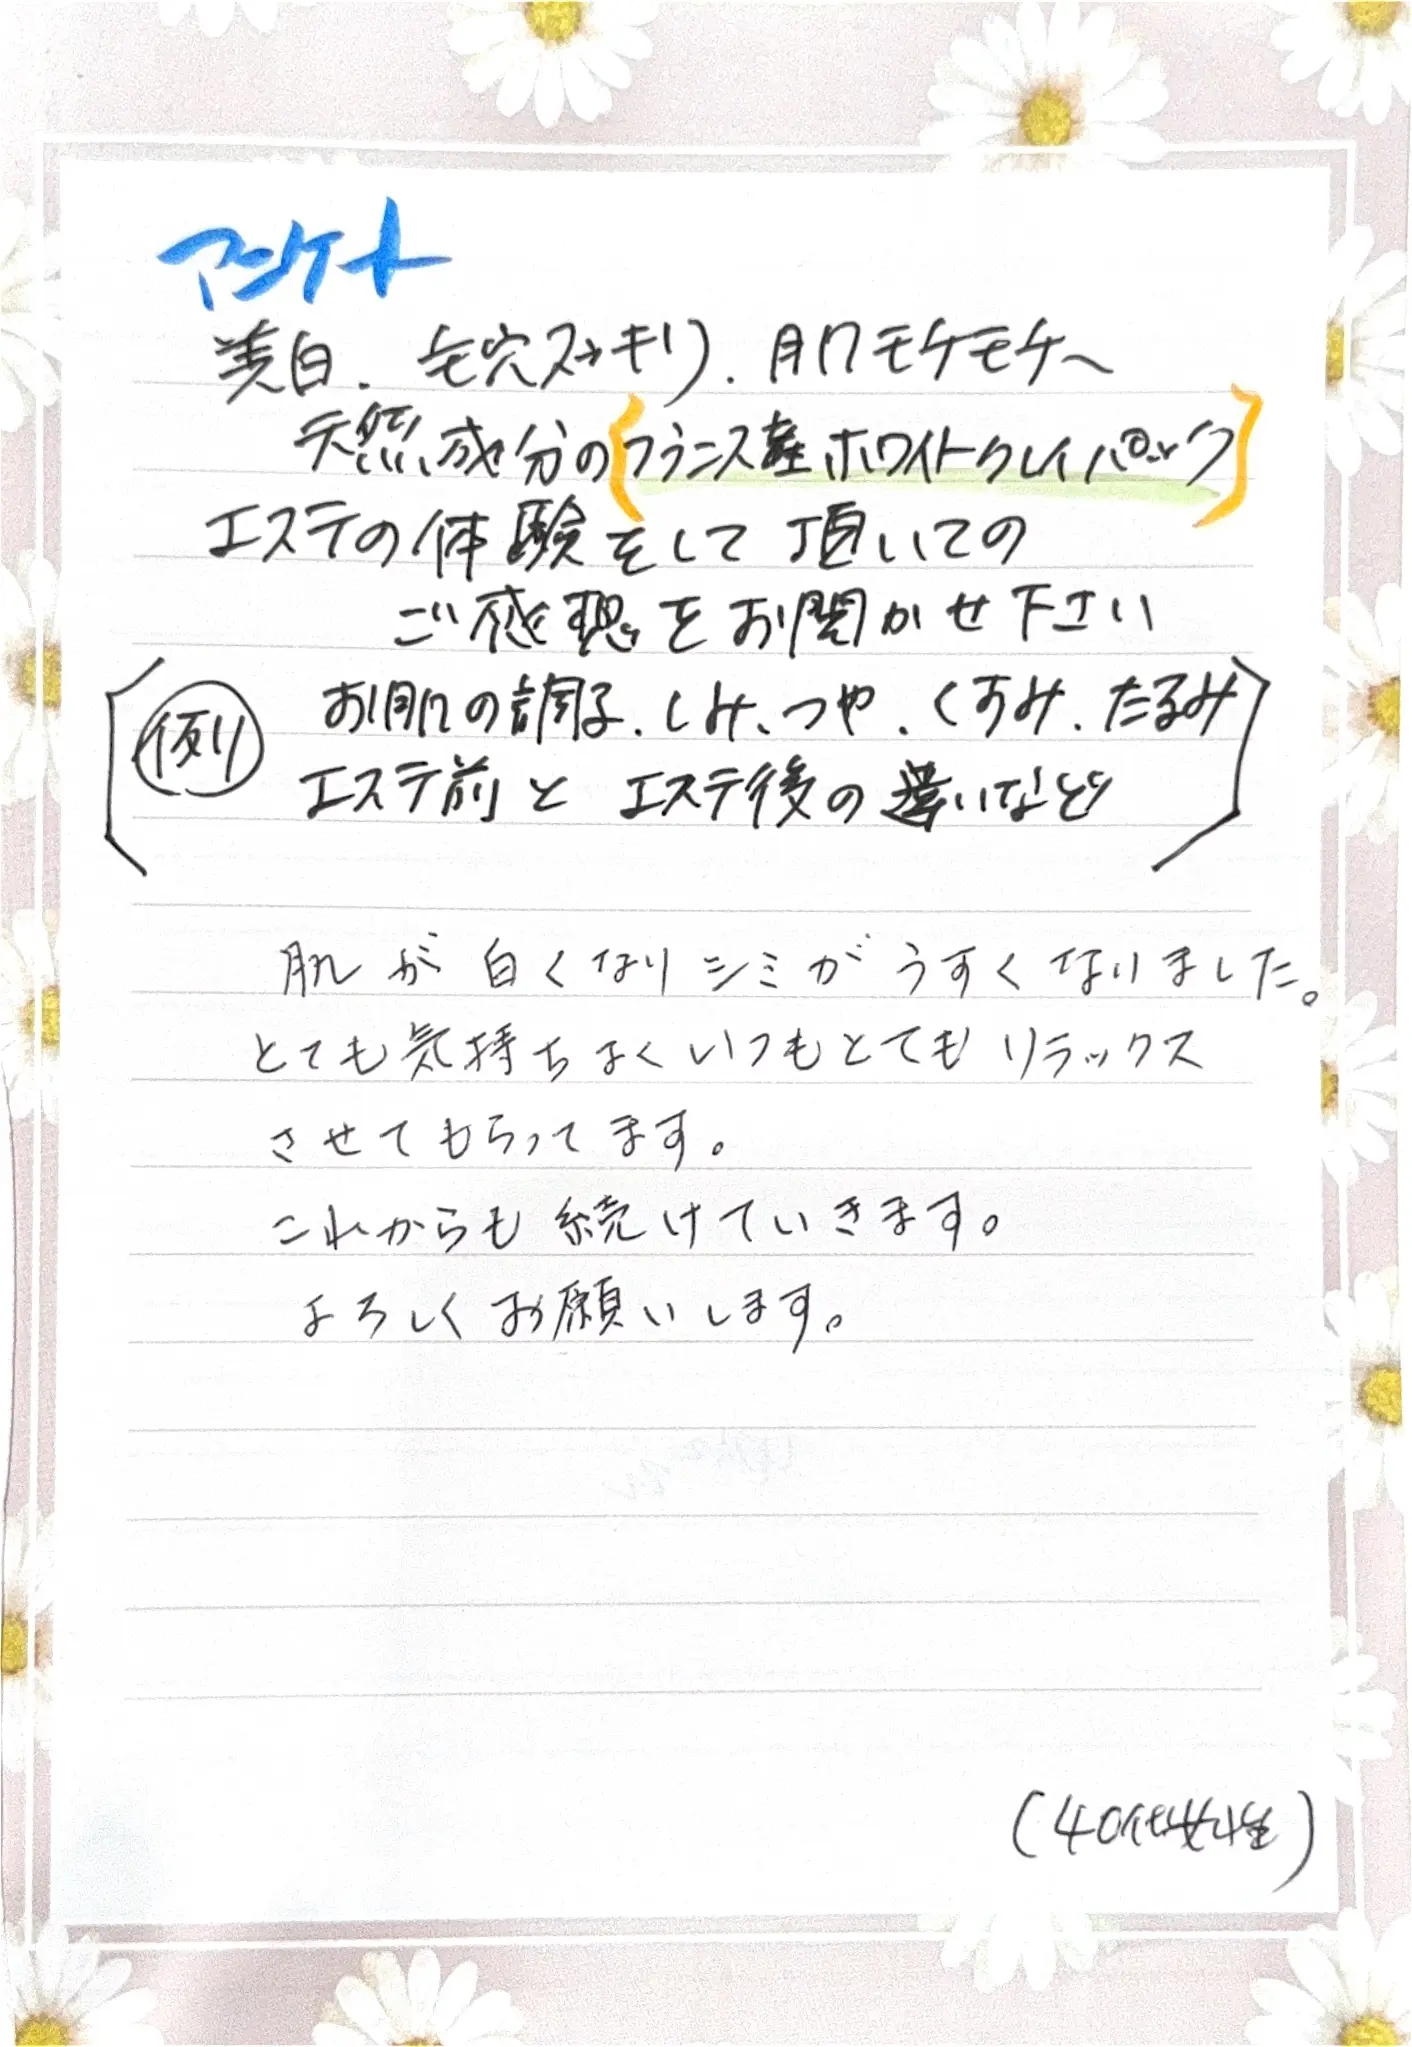 アンケート
美白.毛穴スッキリ.肌モチモチへ
天然成分の{フランス産ホワイトクレイパック}
エステの体験をして頂いての
ご感想をお聞かせ下さい
例 お肌の調子.しみ、つや.くすみ.たるみ
エステ前とエステ後の違いなど
肌が白くなりシミがうすくなりました。
とても気持ちよくいつもとてもリラックス
させてもらってます。
これからも続けていきます。
よろしくお願いします。
(40代女性)